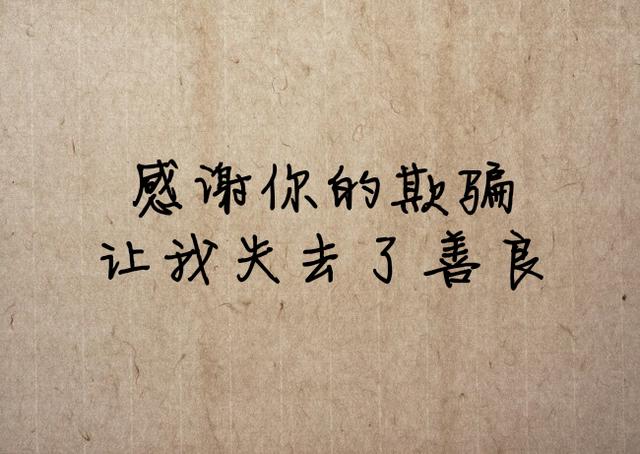 感谢你的欺骗
让我失去了善良